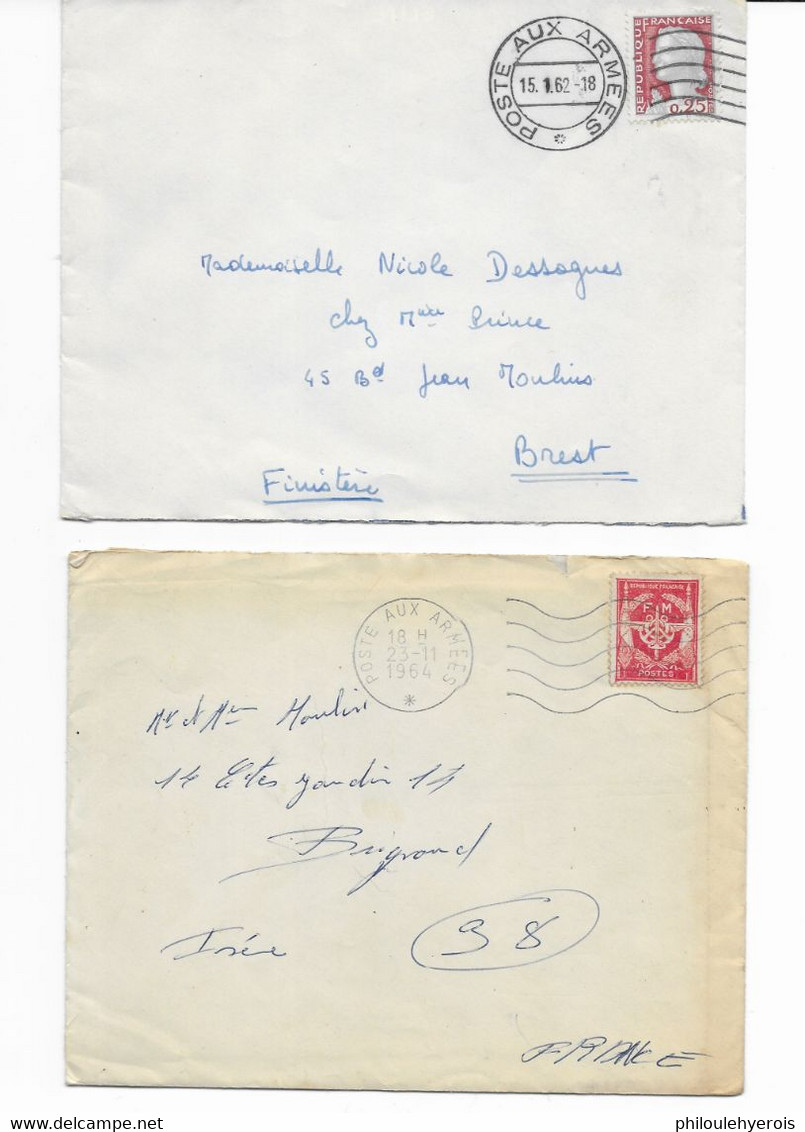 POSTE AUX ARMEES
15.1.62-18
REPUBLIQUE FRANCAISE
0,25
Mademoiselle Nicole Dessagnes
chez Mme Prince
45 Bd Jean Moulins
Brest
Finistère
POSTE AUX ARMEES
18 H
23-11
1964
REPUBLIQUE FRANCAISE
F M
POSTES
Mr et Mme Moulin
14 Cités Jardin 14
Brignoud
Isère
38
FRANCE
delcampe.net
philoulehyerois